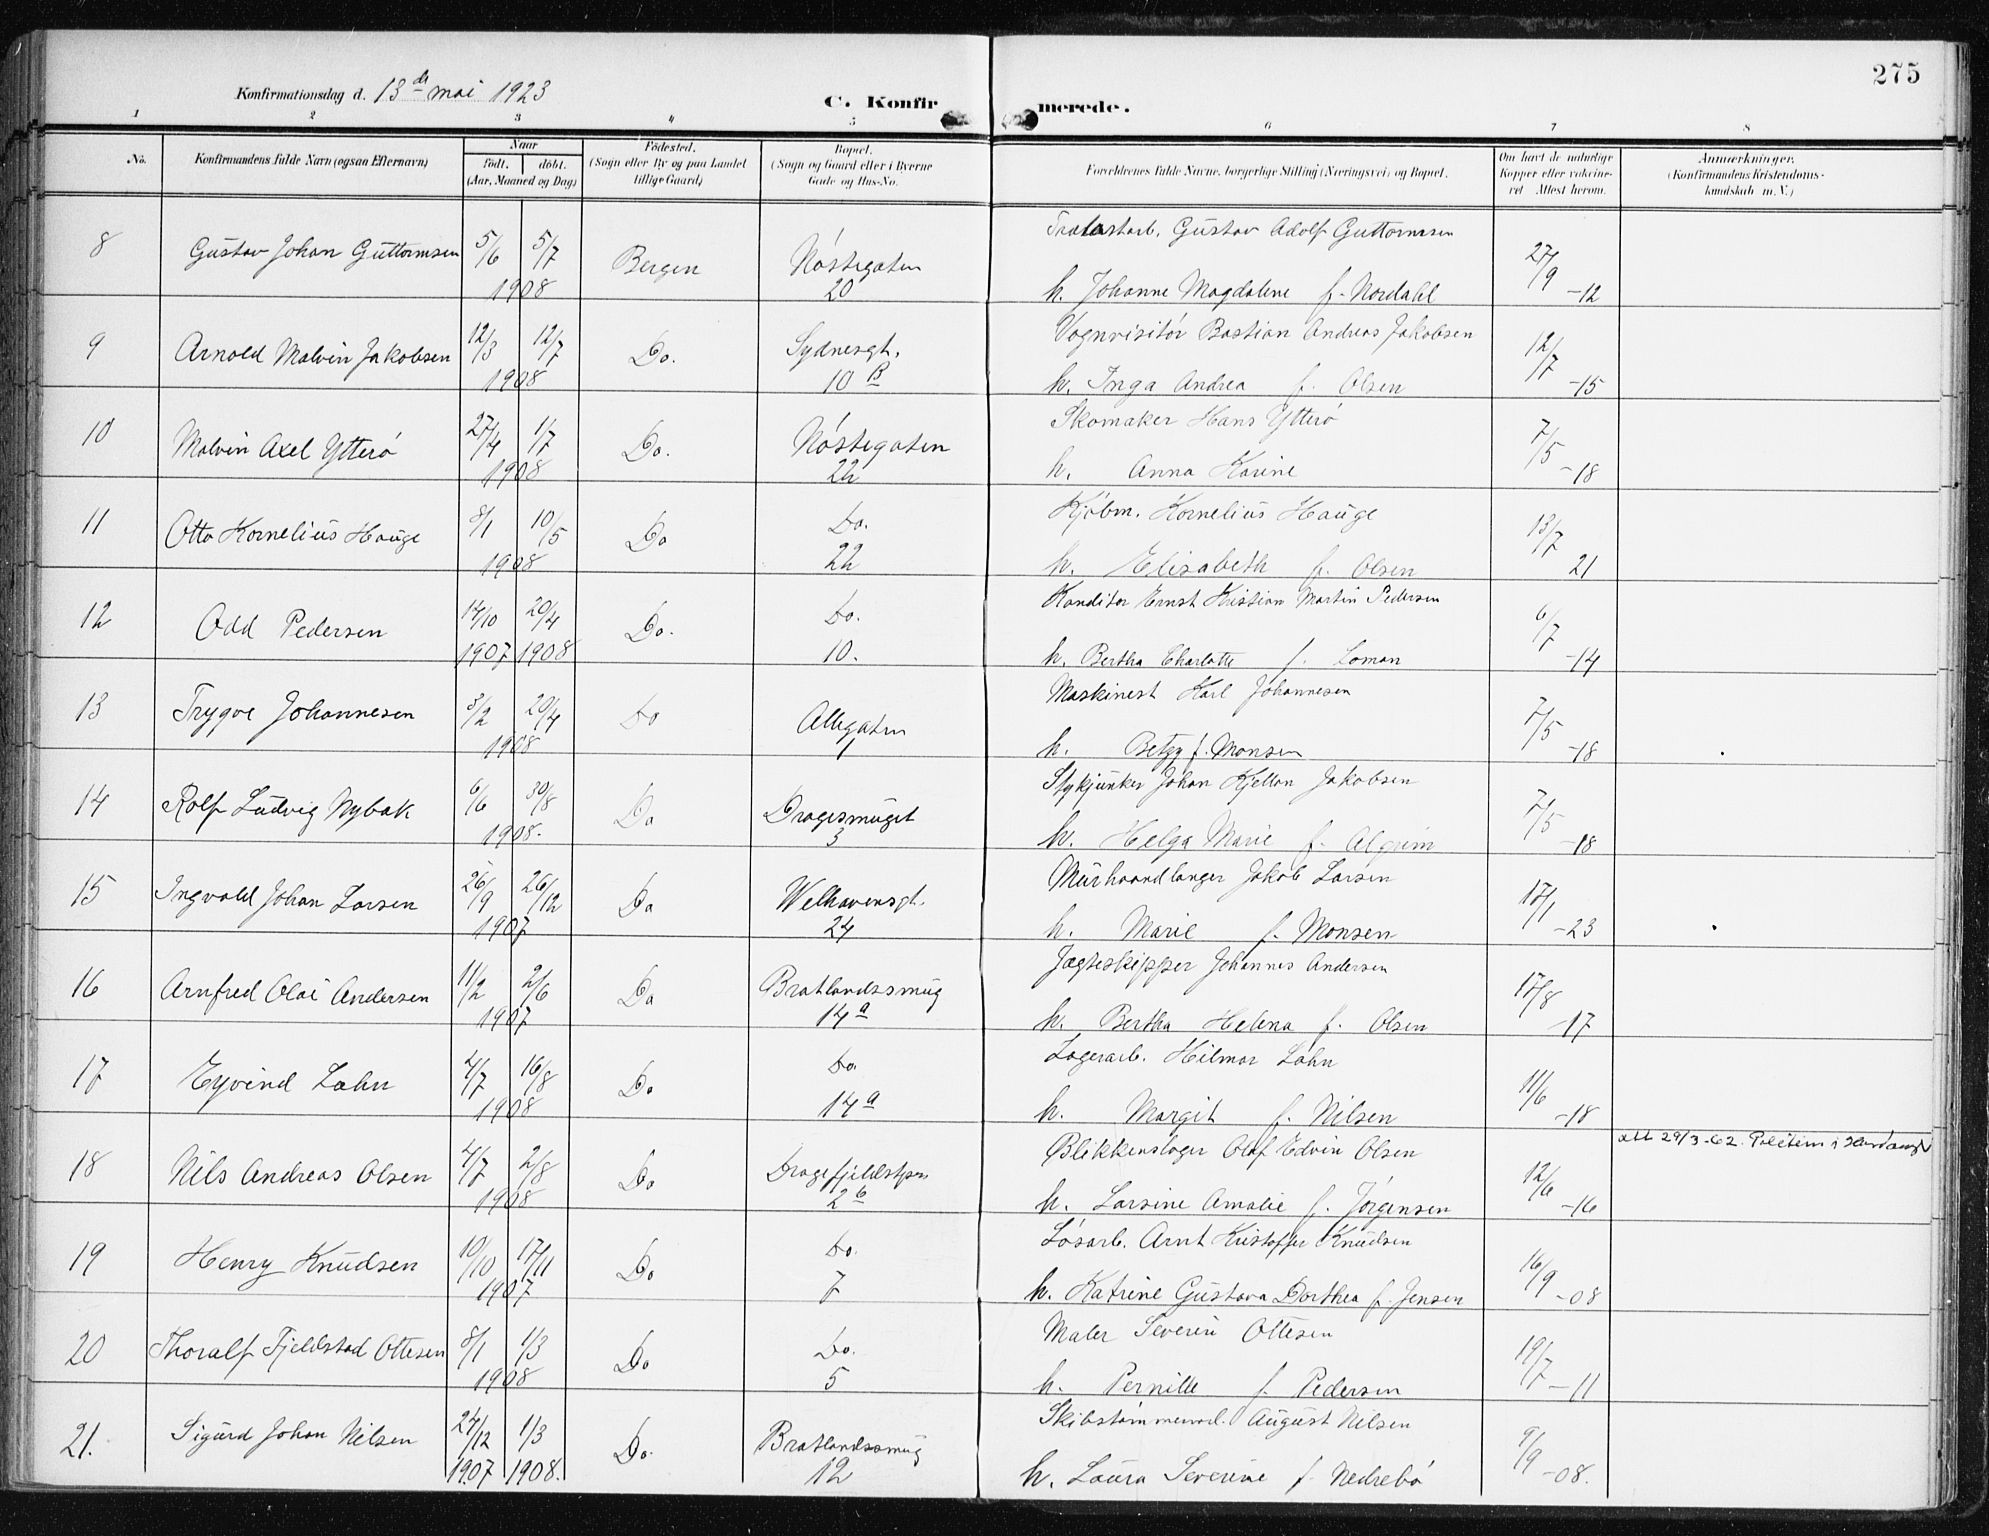 275
Konfirmationsdag d. 13de mai 1923
C. Konfirmerede.
1 2 3 4 5 6 7 8
No. Konfirmandens fulde Navn (ogsaa Efternavn) Naar födt. döbt. (Aar, Maaned og Dag) Födested. (Sogn eller By og paa Landet tillige Gaard) Bopæl. (Sogn og Gaard eller i Byerne Gade og Hus-No. Forældrenes fulde Navne, borgerlige Stilling (Næringsvei) og Bopæl. Om havt de naturlige Kopper eller vakcineret Attest herom. Anmærkninger. (Konfirmandens Kristendomskundskab m. V.)
8 Gustav Johan Guttormsen 5/6 5/7 Bergen Nöstegaten Gustav Adolf Guttormsen 27/9
1908 20 h. Johanne Magdalene f. Nordahl -12
9 Arnold Malvin Jakobsen 12/3 12/7 Do. Sydnesgt. Vognvisitör Bastian Andreas Jakobsen 12/7
1908 10 B h. Inga Andrea f. Olsen -15
10 Malvin Axel Ytterö 27/4 1/7 Do. Nöstegaten Skomaker Hans Ytterö 7/5
1908 22 h. Anna Karine -18
11 Otto Kornelius Hauge 8/1 10/5 Do Do. Kjöbm. Kornelius Hauge 13/7
1908 22 h. Elisabeth f. Olsen 21
12 Odd Pedersen 14/10 20/4 Do. Do. Konditor Ernst Kristian Martin Pedersen 6/7
1907 1908 10. h. Bertha Charlotte f. Loman -14
13 Trygve Johannesen 3/2 20/4 Do Allegaten Maskinest Karl Johannesen 7/5
1908 1 h. Betzy f. Monsen -18
14 Rolf Ludvig Nybak 6/6 30/8 Do Dragesmuget Stykjunker Johan Kjellan Jakobsen 7/5
1908. 3 h. Helga Marie f. Algrim -18
15 Ingvald Johan Larsen 26/9 26/12 Do Welhavensgt. Murhaandlanger Jakob Larsen 17/1
1907 24 h. Marie f. Monsen -23
16 Arnfred Olai Andersen 11/2 2/6 Do Bratlandssmug Jægteskipper Johannes Andersen 17/8
1907 14 a h. Bertha Helena f. Olsen -17
17 Eyvind Lahn 4/7 16/8 Do Do. Lagerarb. Hilmar Lahn 11/6
1908 14 a h. Margit f. Nilsen -18
18 Nils Andreas Olsen 4/7 2/8 Do Blikkenslager Olaf Edvin Olsen 12/6 att 29/3-62. Politiem i
1908 2 b h. Larsine Amalie f. Jörgensen -16
19 Henry Knudsen 10/10 17/11 Do Do. Løsarb. Arnt Kristoffer Knudsen 16/9
1907 7 h. Katrine Gustava Dorthea f. Jensen -08
20 Thoralf Fjeldstad Ottesen 8/1 1/3 Do Do. Maler Severin Ottesen 19/7
1908 5 h. Pernille f. Pedersen -11
21. Sigurd Johan Nilsen 24/12 1/3 Do. Bratlandssmug Skibstömmermd. August Nilsen 9/9
1907 1908. 12 h. Laura Severine f. Nedrebö -08.